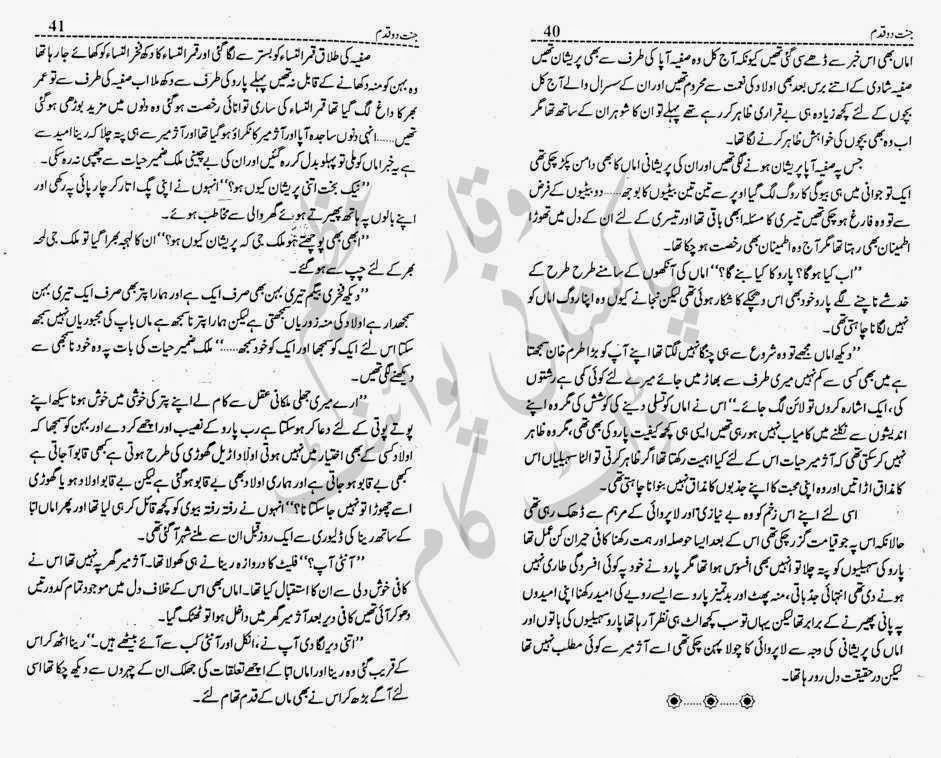 جنت دو قدم
40
اماں بھی اس خبر سے ڈھے سی گئی تھیں کیونکہ آج کل وہ صفیہ آپا کی طرف سے بھی پریشان تھیں
صفیہ شادی کے اتنے برس بعد بھی اولاد کی نعمت سے محروم تھیں اور ان کے سسرال والے آج کل
بچوں کے لئے کچھ زیادہ ہی بے قراری ظاہر کر رہے تھے پہلے تو ان کا شوہر ان کے ساتھ تھا مگر
اب وہ بھی بچوں کی خواہش ظاہر کرنے لگا تھا۔
جس پہ صفیہ آپا پریشان ہونے لگی تھیں اور ان کی پریشانی اماں کا بھی دامن پکڑ چکی تھی
ایک تو جوانی میں ہی بیوگی کا روگ لگ گیا اوپر سے تین تین بیٹیوں کا بوجھ...... دو بیٹیوں کے فرض
سے تو وہ فارغ ہو چکی تھیں تیسری کا مسئلہ ابھی باقی تھا اور تیسری کے لئے ان کے دل میں تھوڑا
اطمینان بھی رہتا تھا مگر آج وہ اطمینان بھی رخصت ہو چکا تھا۔
’’اب کیا ہوگا؟ پارو کا کیا بنے گا؟‘‘ اماں کی آنکھوں کے سامنے طرح طرح کے
خدشے ناچنے لگے پارو خود بھی اس دھچکے کا شکار ہوئی تھی لیکن نجانے کیوں وہ اپنا روگ اماں کو
نہیں لگانا چاہتی تھی۔
’’دیکھ اماں مجھے تو وہ شروع سے ہی چنگا نہیں لگتا تھا اپنے آپ کو بڑا طرم خان سمجھتا
ہے میں بھی کسی سے کم نہیں میری طرف سے بھاڑ میں جائے میرے لئے کوئی کمی ہے رشتوں
کی، ایک اشارہ کروں تو لائن لگ جائے۔‘‘ اس نے اماں کو تسلی دینے کی کوشش کی مگر وہ اپنے
اندیشوں سے نکلنے میں کامیاب نہیں ہو رہی تھیں ایسی ہی کچھ کیفیت پارو کی بھی تھی، مگر وہ ظاہر
نہیں کر سکتی تھی کہ آژمیر حیات اس کے لئے کیا اہمیت رکھتا تھا اگر ظاہر کرتی تو الٹا سہیلیاں اس
کا مذاق اڑاتیں اور وہ اپنی محبت کا اپنے جذبوں کا مذاق نہیں بنوانا چاہتی تھی۔
اسی لئے اپنے اس زخم کو وہ بے نیازی اور لاپروائی کے مرہم سے ڈھک رہی تھی
حالانکہ اس پہ جو قیامت گزر چکی تھی اس کے بعد ایسا حوصلہ اور ہمت رکھنا کافی حیران کن عمل تھا
پارو کی سہیلیوں کو پتہ چلا تو انہیں بھی افسوس ہوا تھا مگر پارو نے خود پہ کوئی افسردگی طاری نہیں
ہونے دی تھی انتہائی جذباتی، منہ پھٹ اور بدتمیز پارو سے ایسے رویے کی امید رکھنا اپنی امیدوں
پہ پانی پھیرنے کے برابر تھا لیکن یہاں تو سب کچھ الٹ ہی نظر آ رہا تھا پارو سہیلیوں کی باتوں اور
اماں کی پریشانی کی وجہ سے لاپروائی کا چولا پہن چکی تھی اسے آژمیر سے کوئی مطلب نہیں تھا
لیکن درحقیقت دل رو رہا تھا۔
جنت دو قدم
41
صفیہ کی طلاق قمر النساء کو بستر سے لگا گئی اور قمر النساء کا دکھ فخر النساء کو کھائے جا رہا تھا
وہ بہن کو منہ دکھانے کے قابل نہ تھیں پہلے پارو کی طرف سے دکھ ملا اب صفیہ کی طرف سے تو عمر
بھر کا داغ لگ گیا تھا قمر النساء کی ساری توانائی رخصت ہو گئی وہ دنوں میں مزید بوڑھی ہو گئی
تھیں...... انہی دنوں ساجدہ آپا اور آژمیر کا ٹکراؤ ہو گیا تھا اور آژمیر سے ہی پتہ چلا کہ رینا امید سے
ہے یہ خبر اماں کو ملی تو پہلو بدل کر رہ گئیں اور ان کی بے چینی ملک ضمیر حیات سے چھپی نہ رہ سکی۔
’’نیک بخت اتنی پریشان کیوں ہو؟‘‘ انہوں نے اپنی پگ اتار کر چارپائی پہ رکھی اور
اپنے بالوں پہ ہاتھ پھیرتے ہوئے گھر والی سے مخاطب ہوئے۔
’’ابھی بھی پوچھتے ہو ملک جی کہ پریشان کیوں ہو؟‘‘ ان کا لہجہ بھرا گیا تو ملک جی لمحہ
بھر کے لئے چپ سے ہو گئے۔
’’دیکھ فخری بیگم تیری بہن بھی صرف ایک ہے اور ہمارا پتر بھی صرف ایک تیری بہن
سمجھدار ہے اولاد کی منہ زوریاں سمجھتی ہے لیکن ہمارا پتر نا سمجھ ہے ماں باپ کی مجبوریاں نہیں سمجھ
سکتا اس لئے ایک کو سمجھا اور ایک کو خود سمجھ......‘‘ ملک ضمیر حیات کی بات پہ وہ نا سمجھی سے
دیکھنے لگی تھیں۔
’’ارے میری جھلی ملکانی عقل سے کام لے اپنے پتر کی خوشی میں خوش ہونا سیکھ اپنے
پوتے پوتی کے لئے دعا کر ہو سکتا ہے رب پارو کے نصیب اور اچھے کر دے اور بہن کو سمجھا کہ
اولاد کسی کے بھی اختیار میں نہیں ہوتی اولاد اڑیل گھوڑی کی طرح ہوتی ہے کبھی قابو آ جاتی ہے
کبھی بے قابو ہو جاتی ہے اور ہماری اولاد بھی بے قابو ہو گئی ہے لیکن بے قابو اولاد ہو یا گھوڑی
اسے چھوڑا تو نہیں جا سکتا نا؟‘‘ انہوں نے رفتہ رفتہ بیوی کو کچھ قائل کر ہی لیا تھا اور پھر اماں ابا
کے ساتھ رینا کی ڈلیوری سے ایک روز قبل ان سے ملنے شہر آ گئی تھی۔
’’آنٹی آپ؟‘‘ فلیٹ کا دروازہ رینا نے ہی کھولا تھا۔ آژمیر گھر پہ نہیں تھا اس نے
کافی خوش دلی سے ان کا استقبال کیا تھا۔ اماں بھی اس کے خلاف دل میں موجود تمام کدورتیں
دھو کر آئی تھیں کافی دیر بعد آژمیر گھر میں داخل ہوا تو ٹھٹک گیا۔
’’اتنی دیر لگا دی آپ نے، انکل اور آنٹی کب سے آئے بیٹھے ہیں۔‘‘ رینا اٹھ کر اس
کے قریب گئی وہ رینا اور اماں ابا کے اچھے تعلقات کی جھلک ان کے چہروں سے دیکھ چکا تھا اسی
لئے آگے بڑھ کر اس نے بھی ماں کے قدم تھام لئے۔